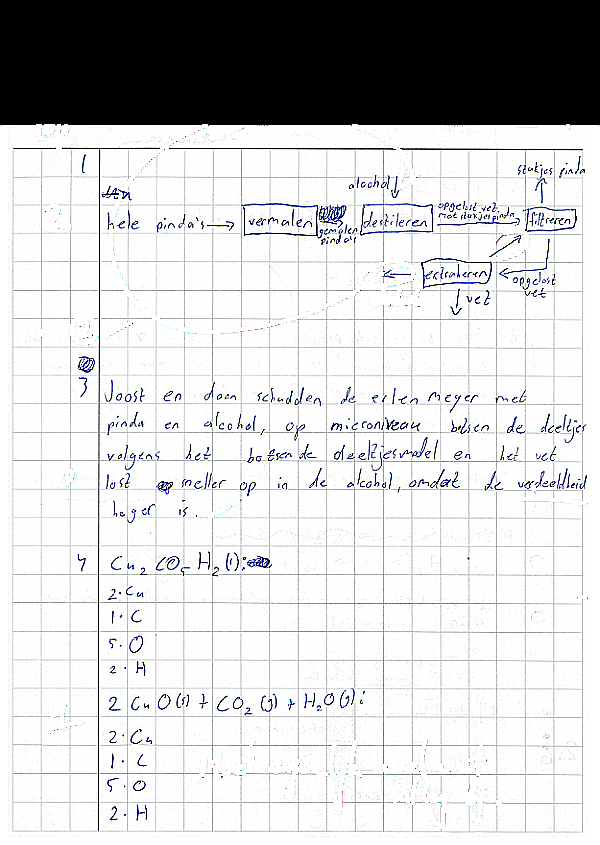 1
stukjes pinda
alcohol
hele pinda's → vermalen
gemalen
pinda's
destileren
opgelost vet
met stukjes pinda
filtreren
extraheren
opgelost
vet
vet
3 Joost en daan schudden de erlenmeyer met
pinda en alcohol, op microniveau botsen de deeltjes
volgens het botsende deeltjesmodel en het vet
lost sneller op in de alcohol, omdat de verdeeldheid
hoger is.
4 Cu₂CO₅H₂(s):
2·Cu
1·C
5·O
2·H
2 CuO(s) + CO₂(g) + H₂O(g):
2·Cu
1·C
5·O
2·H